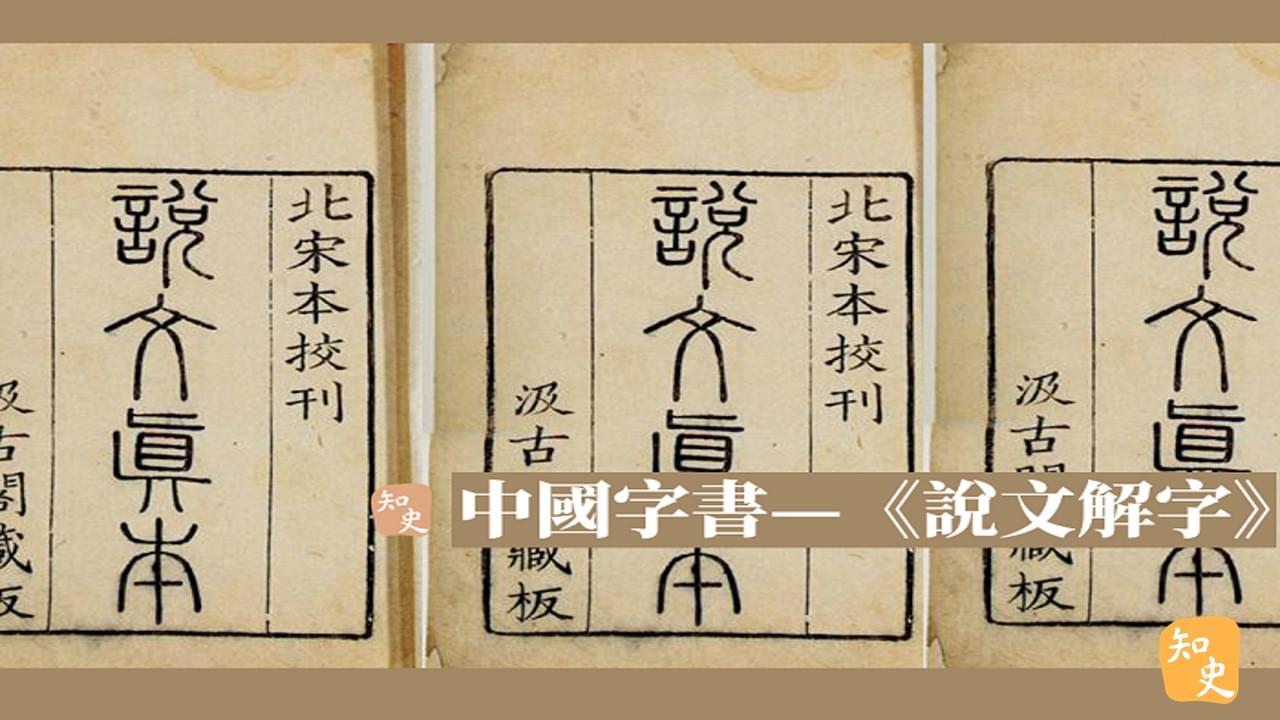 北宋本挍刊
說文眞本
汲古閣藏板
北宋本挍刊
說文眞本
汲古藏板
說文眞本
汲古閣藏板
知史
中國字書—《說文解字》
知史